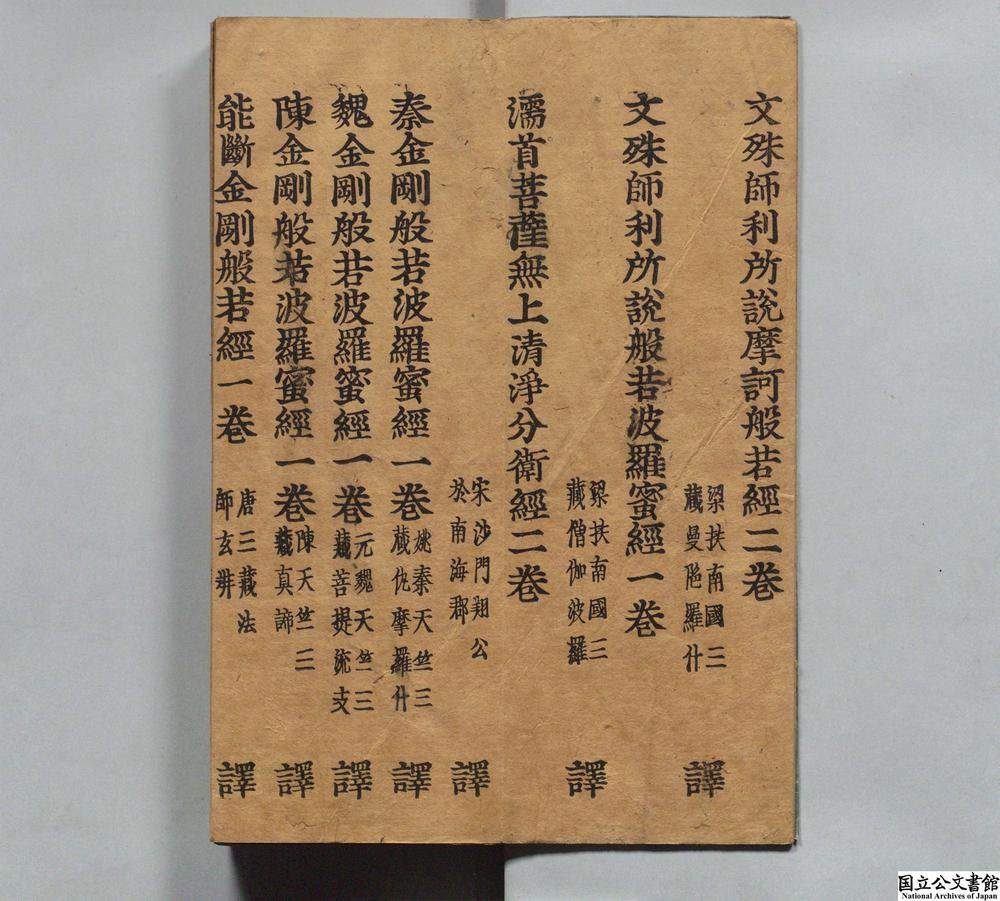 文殊師利所說摩訶般若經二卷
梁扶南國三
藏曼陁羅什
譯
文殊師利所說般若波羅蜜經一卷
梁扶南國三
藏僧伽波羅
譯
濡首菩薩無上清淨分衛經二卷
宋沙門翔公
於南海郡
譯
秦金剛般若波羅蜜經一卷
姚秦天竺三
藏仇摩羅什
譯
魏金剛般若波羅蜜經一卷
元魏天竺三
藏菩提流支
譯
陳金剛般若波羅蜜經一卷
陳天竺三
藏真諦
譯
能斷金剛般若經一卷
唐三藏法
師玄奘
譯
国立公文書館
National Archives of Japan